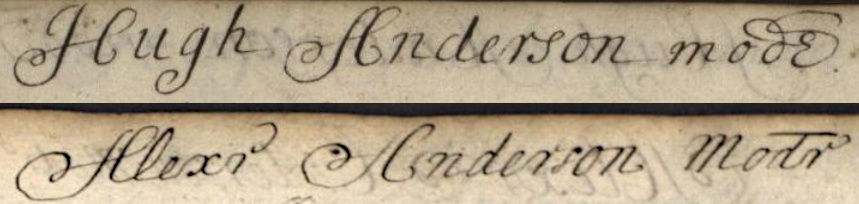 Hugh Anderson modr
Alexr Anderson Modr